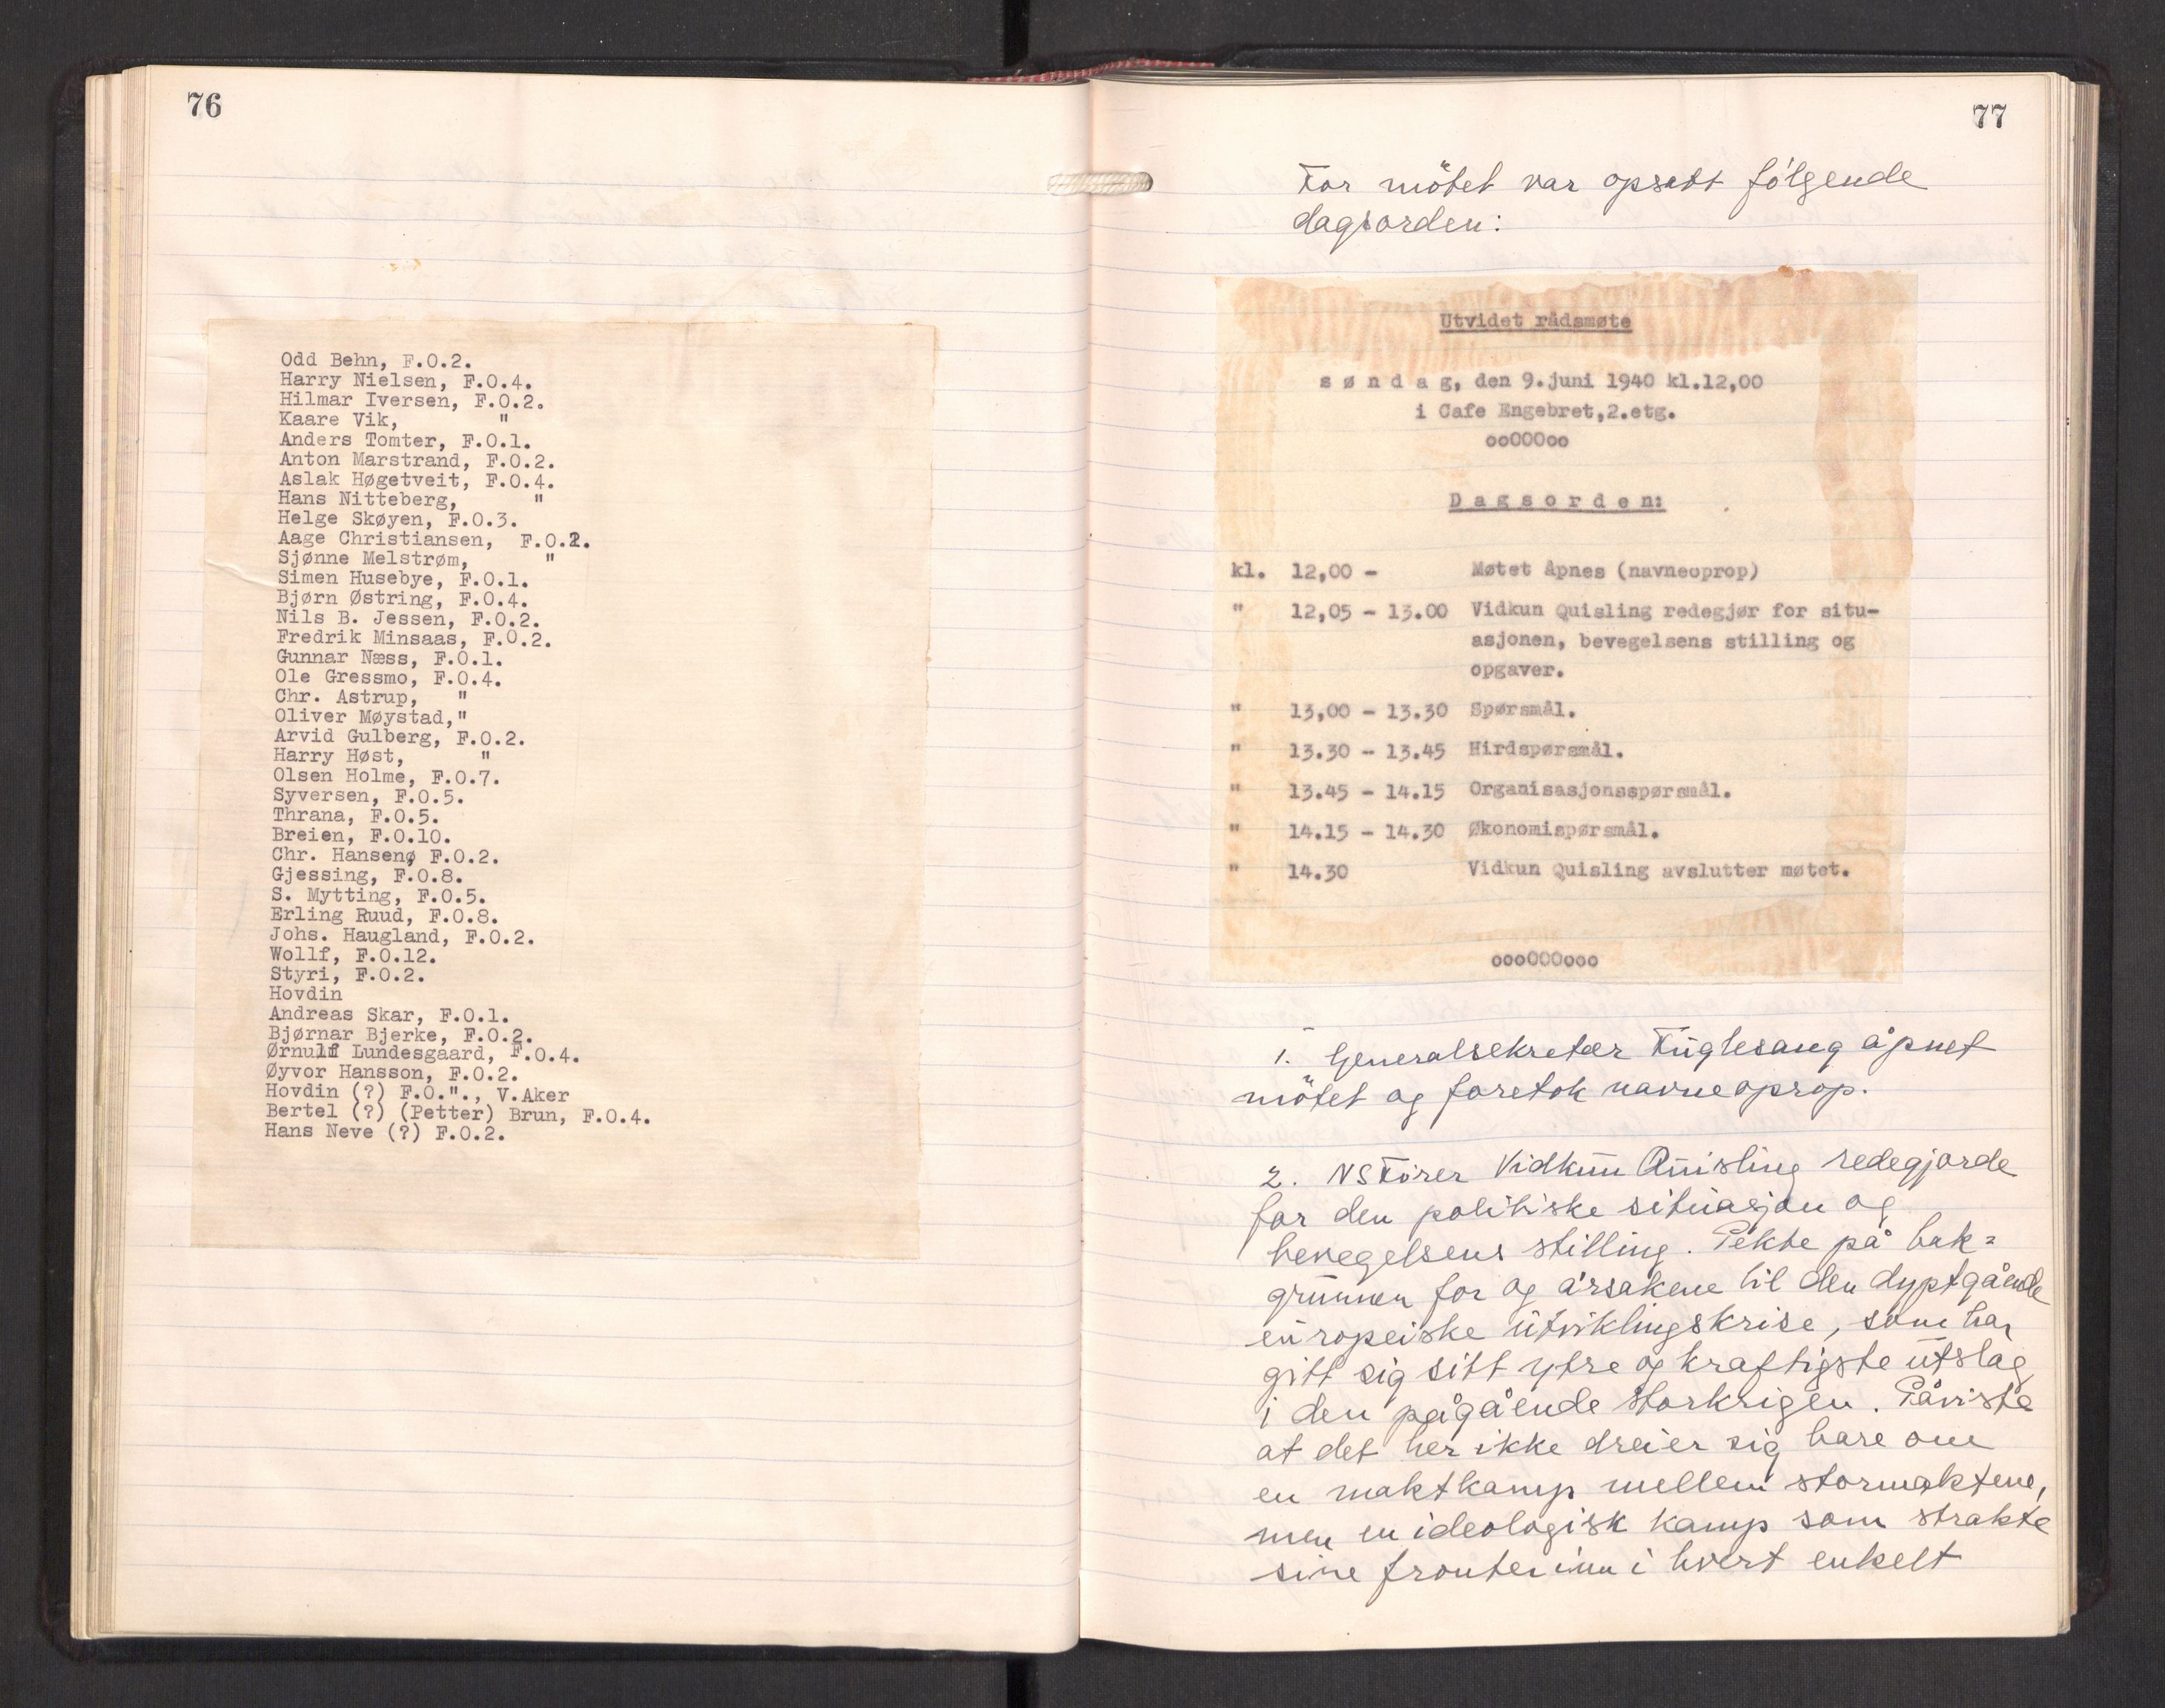 76
Odd Behn, F.O.2.
Harry Nielsen, F.O.4.
Hilmar Iversen, F.O.2.
Kaare Vik, "
Anders Tomter, F.O.1.
Anton Marstrand, F.O.2.
Aslak Høgetveit, F.O.4.
Hans Nitteberg, "
Helge Skøyen, F.O.3.
Aage Christiansen, F.O.2.
Sjønne Melstrøm, "
Simen Husebye, F.O.1.
Bjørn Østring, F.O.4.
Nils B. Jessen, F.O.2.
Fredrik Minsaas, F.O.2.
Gunnar Næss, F.O.1.
Ole Gressmo, F.O.4.
Chr. Astrup, "
Oliver Møystad,"
Arvid Gulberg, F.O.2.
Harry Høst, "
Olsen Holme, F.O.7.
Syversen, F.O.5.
Thrana, F.O.5.
Breien, F.O.10.
Chr. Hansen, F.O.2.
Gjessing, F.O.8.
S. Mytting, F.O.5.
Erling Ruud, F.O.8.
Johs. Haugland, F.O.2.
Wollf, F.O.12.
Styri, F.O.2.
Hovdin
Andreas Skar, F.O.1.
Bjørnar Bjerke, F.O.2.
Ørnulf Lundesgaard, F.O.4.
Øyvor Hansson, F.O.2.
Hovdin (?) F.O."., V.Aker
Bertel (?) (Petter) Brun, F.O.4.
Hans Neve (?) F.O.2.
77
For mötet var opsatt følgende
dagsorden:
Utvidet rådsmøte
s ø n d a g, den 9.juni 1940 kl.12,00
i Cafe Engebret,2.etg.
ooOOOoo
D a g s o r d e n:
kl. 12,00 - Møtet åpnes (navneoprop)
" 12,05 - 13.00 Vidkun Quisling redegjør for situ-
asjonen, bevegelsens stilling og
opgaver.
" 13,00 - 13.30 Spørsmål.
" 13.30 - 13.45 Hirdspørsmål.
" 13.45 - 14.15 Organisasjonsspørsmål.
" 14.15 - 14.30 Økonomispørsmål.
" 14.30 Vidkun Quisling avslutter møtet.
oooOOOooo
1. Generalsekretær Fuglesang åpnet
mötet og foretok navneoprop.
2. NS Fører Vidkun Quisling redegjorde
for den politiske situasjon og
bevegelsens stilling. Pekte på bak=
grunnen for og årsakene til den dyptgående
europeiske utviklingskrise, som har
gitt sig sitt ytre og kraftigste utslag
i den pågående storkrigen. Påviste
at det her ikke dreier sig bare om
en maktkamp mellem stormaktene,
men en ideologisk kamp som strakte
sine fronter inn i hvert enkelt